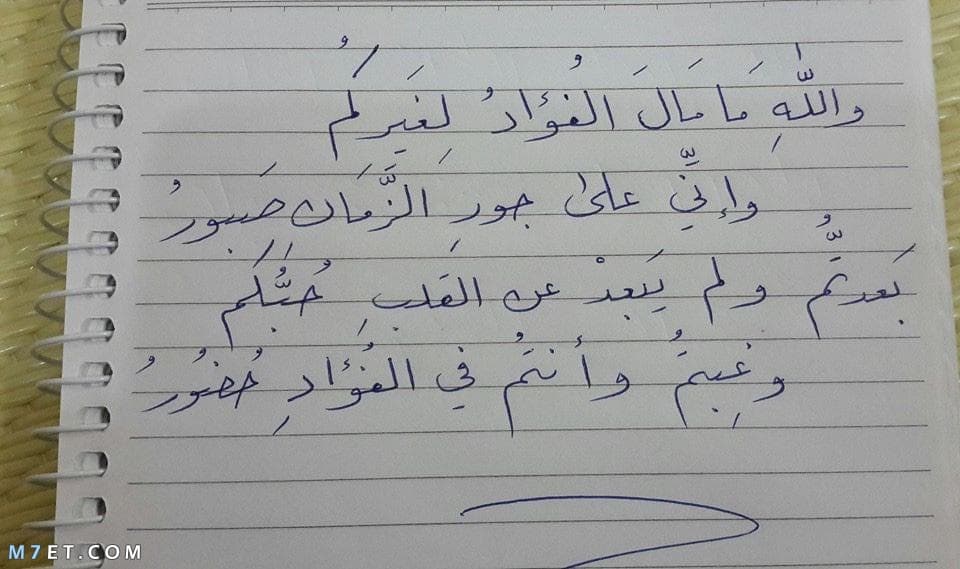 واللّٰهِ مَا مَالَ الفُؤادُ لِغَيرِكُم
وإنِّي على جورِ الزَّمَان صَبورُ
بَعدتُّم ولم يَبعدْ عن القَلبِ حُبُّكُم
وغِبتُم وأنتُم في الفُؤادِ حُضُورُ
M7ET.COM